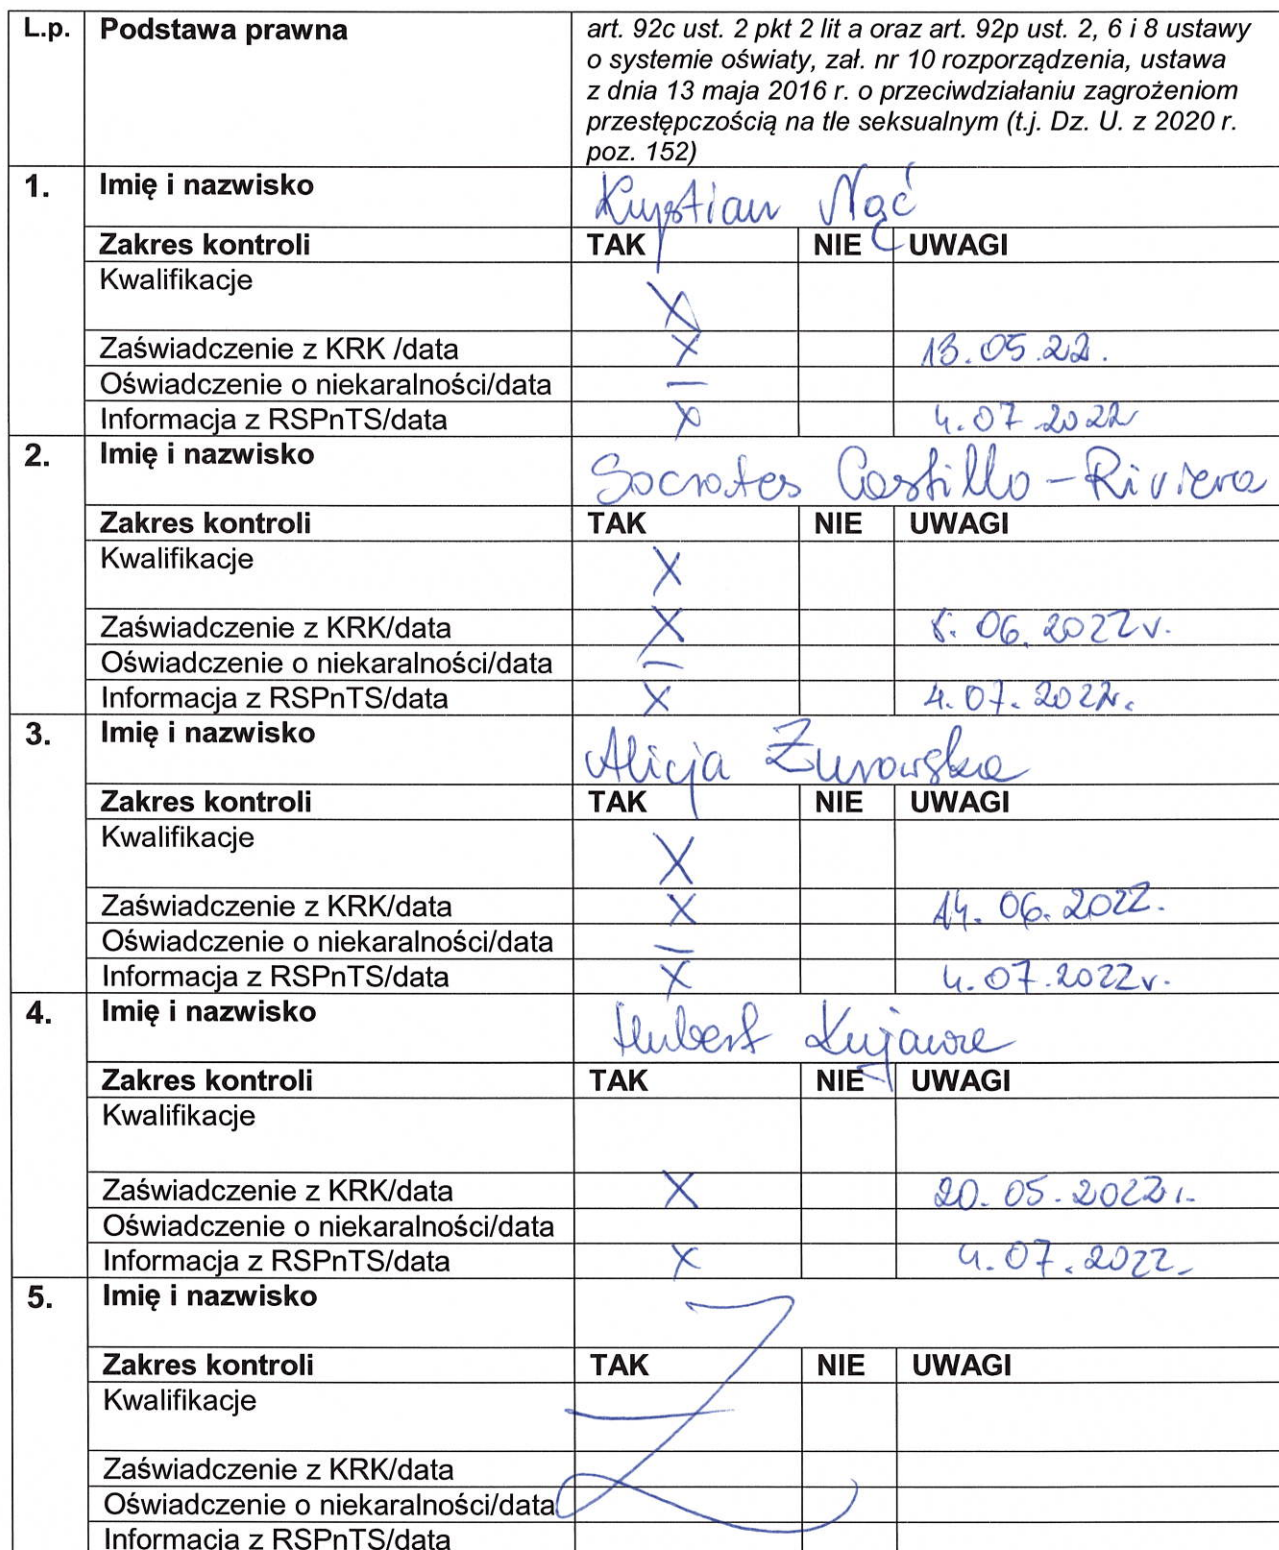 L.p. Podstawa prawna art. 92c ust. 2 pkt 2 lit a oraz art. 92p ust. 2, 6 i 8 ustawy
o systemie oświaty, zał. nr 10 rozporządzenia, ustawa
z dnia 13 maja 2016 r. o przeciwdziałaniu zagrożeniom
przestępczością na tle seksualnym (t.j. Dz. U. z 2020 r.
poz. 152)
1. Imię i nazwisko Krystian
Zakres kontroli TAK NIE UWAGI
Kwalifikacje X
Zaświadczenie z KRK /data X 13.05.22.
Oświadczenie o niekaralności/data —
Informacja z RSPnTS/data X 4.07.2022r
2. Imię i nazwisko Socrates Castillo-Riviera
Zakres kontroli TAK NIE UWAGI
Kwalifikacje X
Zaświadczenie z KRK/data X 06.2022r.
Oświadczenie o niekaralności/data —
Informacja z RSPnTS/data X 4.07.2022r.
3. Imię i nazwisko Alicja Żurowska
Zakres kontroli TAK NIE UWAGI
Kwalifikacje X
Zaświadczenie z KRK/data X 14.06.2022.
Oświadczenie o niekaralności/data —
Informacja z RSPnTS/data X 4.07.2022r.
4. Imię i nazwisko Hubert Kujawa
Zakres kontroli TAK NIE UWAGI
Kwalifikacje
Zaświadczenie z KRK/data X 20.05.2022r.
Oświadczenie o niekaralności/data
Informacja z RSPnTS/data X 4.07.2022.
5. Imię i nazwisko
Zakres kontroli TAK NIE UWAGI
Kwalifikacje
Zaświadczenie z KRK/data
Oświadczenie o niekaralności/data
Informacja z RSPnTS/data